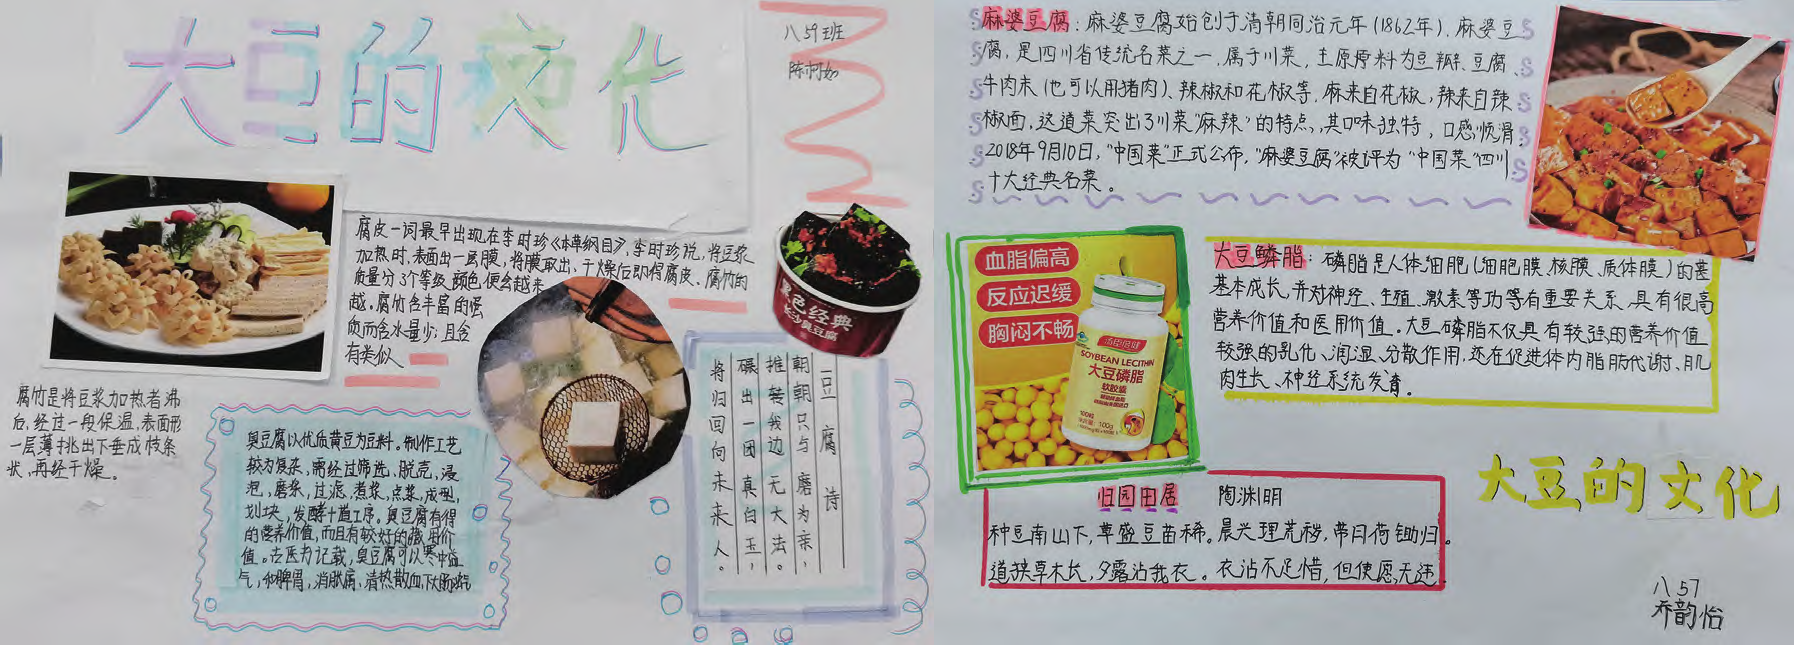 大豆的文化
八59班
腐皮一词最早出现在李时珍《本草纲目》,李时珍说,将豆浆
加热时,表面出一层膜,将膜取出,干燥后即得腐皮、腐竹的
质量分3个等级,颜色便会越来
越,腐竹含丰富的蛋
质而含水量少,且含
有类似
黑色经典
长沙臭豆腐
腐竹是将豆浆加热者沸
后,经过一段保温,表面形
一层薄扌挑出下垂成枝条
状,再经干燥。
臭豆腐以优质黄豆为豆料。制作工艺
较为复杂,需经过筛选、脱壳,浸
泡,磨浆,过滤,煮浆,点浆,成型,
划块,发酵十道工序。臭豆腐有得
的营养价值,而且有较好的藏用价
值。古医为记载,臭豆腐可以寒中益
气,和脾胃,消胀痛,清热散血,下大肠浊气
豆腐诗
一朝朝只与磨为亲,
推转我边无大法。
碾出一团真白玉,
将归回向未来人。
麻婆豆腐:麻婆豆腐始创于清朝同治元年(1862年),麻婆豆
腐,是四川省传统名菜之一,属于川菜,主原原料为豆瓣、豆腐、
牛肉末(也可以用猪肉)、辣椒和花椒等,麻来自花椒,辣来自辣
椒面,这道菜突出了川菜"麻辣"的特点,其口味独特,口感顺滑
2018年9月10日,"中国菜"正式公布,"麻婆豆腐"被评为"中国菜"四川
十大经典名菜。
血脂偏高
反应迟缓
胸闷不畅
汤臣倍健
SOYBEAN LECITHIN
大豆磷脂
软胶囊
100粒
100g
大豆鳞脂:磷脂是人体细胞(细胞膜、核膜、质体膜)的甚
基本成长,并对神经、生殖、激素等功等有重要关系,具有很高
营养价值和医用价值。大豆磷脂不仅具有较强的营养价值
较强的乳化、润湿、分散作用,还在促进体内脂肪代谢、肌
肉生长、神经系统发育。
大豆的文化
归园田居 陶渊明
种豆南山下,草盛豆苗稀。晨兴理荒秽,带月荷锄归。
道狭草木长,夕露沾我衣。衣沾不足惜,但使愿无违.
八57
乔韵怡